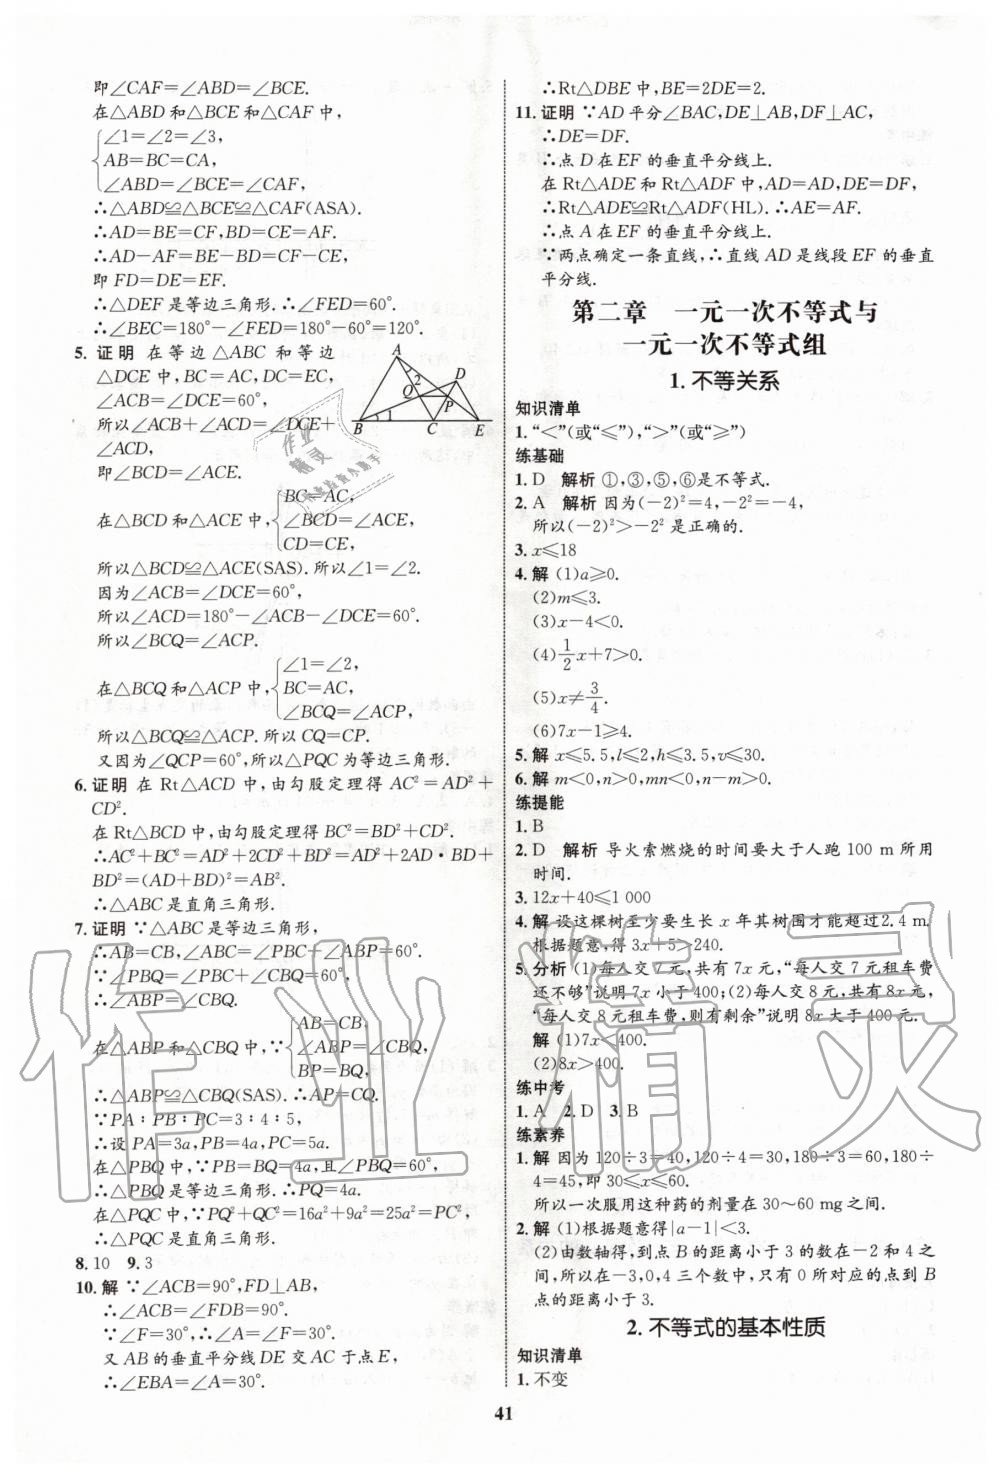 即∠CAF=∠ABD=∠BCE.
在△ABD 和△BCE 和△CAF 中,
∠1=∠2=∠3,
AB=BC=CA,
∠ABD=∠BCE=∠CAF,
∴△ABD≌△BCE≌△CAF(ASA).
∴AD=BE=CF,BD=CE=AF.
∴AD-AF=BE-BD=CF-CE.
即 FD=DE=EF.
∴△DEF 是等边三角形.∴∠FED=60°.
∴∠BEC=180°-∠FED=180°-60°=120°.
5. 证明 在等边△ABC 和等边
△DCE 中,BC=AC,DC=EC,
∠ACB=∠DCE=60°,
所以∠ACB+∠ACD=∠DCE+
∠ACD,
即∠BCD=∠ACE.
A
D
2
Q
P
1
B
C
E
BC=AC,
在△BCD 和△ACE 中,
∠BCD=∠ACE,
CD=CE,
所以△BCD≌△ACE(SAS).所以∠1=∠2.
因为∠ACB=∠DCE=60°,
所以∠ACD=180°-∠ACB-∠DCE=60°.
所以∠BCQ=∠ACP.
∠1=∠2,
在△BCQ 和△ACP 中,
BC=AC,
∠BCQ=∠ACP,
所以△BCQ≌△ACP.所以 CQ=CP.
又因为∠QCP=60°,所以△PQC 为等边三角形.
6. 证明 在 Rt△ACD 中,由勾股定理得 AC²=AD²+
CD².
在 Rt△BCD 中,由勾股定理得 BC²=BD²+CD².
∴AC²+BC²=AD²+2CD²+BD²=AD²+2AD·BD+
BD²=(AD+BD)²=AB².
∴△ABC 是直角三角形.
7. 证明 ∵△ABC 是等边三角形,
∴AB=CB,∠ABC=∠PBC+∠ABP=60°.
∵∠PBQ=∠PBC+∠CBQ=60°,
∴∠ABP=∠CBQ.
AB=CB,
在△ABP 和△CBQ 中,∵
∠ABP=∠CBQ,
BP=BQ,
∴△ABP≌△CBQ(SAS).∴AP=CQ.
∵PA∶PB∶PC=3∶4∶5,
∴设 PA=3a,PB=4a,PC=5a.
在△PBQ 中,∵PB=BQ=4a,且∠PBQ=60°,
∴△PBQ 是等边三角形.∴PQ=4a.
在△PQC 中,∵PQ²+QC²=16a²+9a²=25a²=PC²,
∴△PQC 是直角三角形.
8. 10 9. 3
10. 解 ∵∠ACB=90°,FD⊥AB,
∴∠ACB=∠FDB=90°.
∵∠F=30°,∴∠A=∠F=30°.
又 AB 的垂直平分线 DE 交 AC 于点 E,
∴∠EBA=∠A=30°.
∴Rt△DBE 中,BE=2DE=2.
11. 证明 ∵AD 平分∠BAC,DE⊥AB,DF⊥AC,
∴DE=DF.
∴点 D 在 EF 的垂直平分线上.
在 Rt△ADE 和 Rt△ADF 中,AD=AD,DE=DF,
∴Rt△ADE≌Rt△ADF(HL).∴AE=AF.
∴点 A 在 EF 的垂直平分线上.
∵两点确定一条直线,∴直线 AD 是线段 EF 的垂直
平分线.
第二章 一元一次不等式与
一元一次不等式组
1. 不等关系
知识清单
1. “<”(或“≤”),“>”(或“≥”)
练基础
1. D 解析 ①,③,⑤,⑥是不等式.
2. A 解析 因为(-2)²=4,-2²=-4,
所以(-2)²>-2² 是正确的.
3. x≤18
4. 解 (1)a≥0.
(2)m≤3.
(3)x-4<0.
(4)1/2x+7>0.
(5)x≠3/4.
(6)7x-1≥4.
5. 解 x≤5.5,l≤2,h≤3.5,v≤30.
6. 解 m<0,n>0,mn<0,n-m>0.
练提能
1. B
2. D 解析 导火索燃烧的时间要大于人跑 100 m 所用
时间.
3. 12x+40≤1 000
4. 解 设这棵树至少要生长 x 年其树围才能超过2.4 m.
根据题意,得 3x+5>240.
5. 分析 (1)每人交 7 元,共有 7x 元,“每人交 7 元租车费
还不够”说明 7x 小于 400;(2)每人交 8 元,共有 8x元,
“每人交 8 元租车费,则有剩余”说明 8x 大于 400 元.
解 (1)7x<400.
(2)8x>400.
练中考
1. A 2. D 3. B
练素养
1. 解 因为 120÷3=40,120÷4=30,180÷3=60,180÷
4=45,即 30≤x≤60.
所以一次服用这种药的剂量在 30~60 mg 之间.
2. 解 (1)根据题意得|a-1|<3.
(2)由数轴得,到点 B 的距离小于 3 的数在-2 和 4 之
间,所以在-3,0,4 三个数中,只有 0 所对应的点到 B
点的距离小于 3.
2. 不等式的基本性质
知识清单
1. 不变
41
作业精灵
作业
精灵